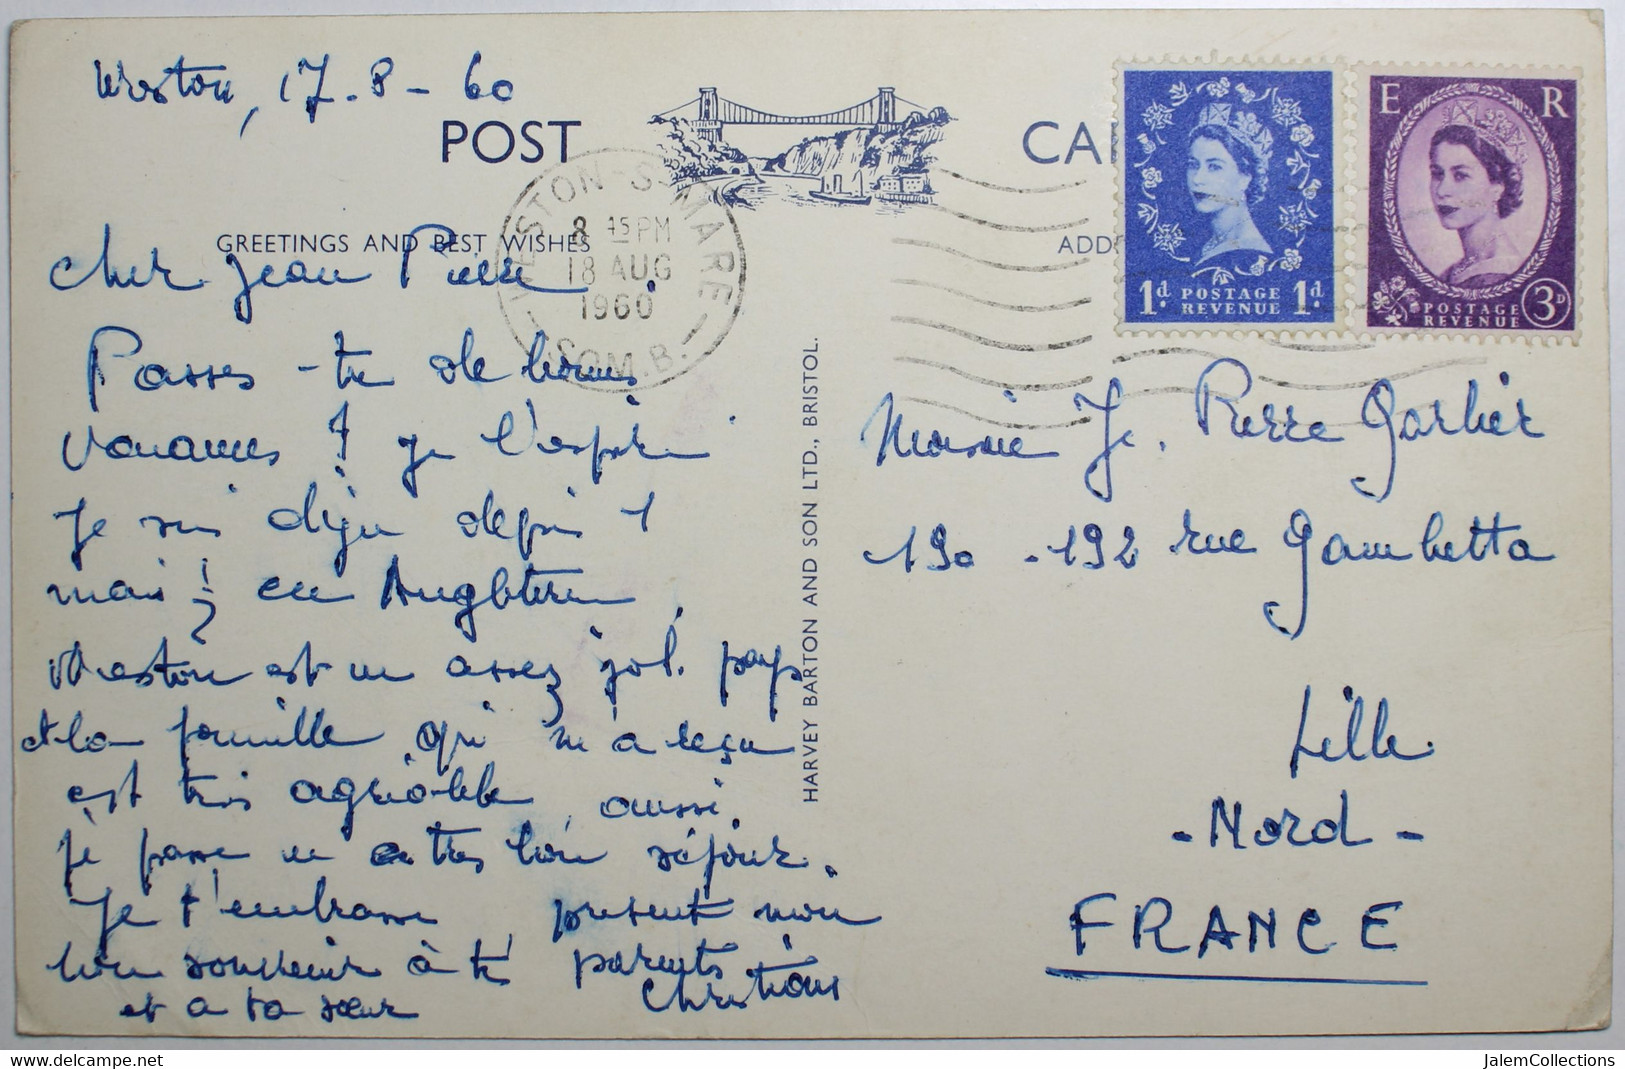 Weston, 17-8-60
POST CA
GREETINGS AND BEST WISHES
ADD
WESTON-S-MARE
8 45 PM
18 AUG
1960
SOM.B.
E R
1d POSTAGE REVENUE 1d
POSTAGE REVENUE 3D
Cher Jean Pierre
Passes-tu de bonnes
vacances ? je l'espère
Je suis déjà depuis 1
mois en Angleterre.
Weston est un assez joli pays
et la famille qui m'a reçu
est très agréable, aussi
je passe un très bon séjour.
Je t'embrasse, présent mon
bon souvenir à tes parents
et a ta sœur Christian
HARVEY BARTON AND SON LTD., BRISTOL.
J. Pierre Garbier
190-192 rue Gambetta
Lille
-Nord-
FRANCE
JalemCollections